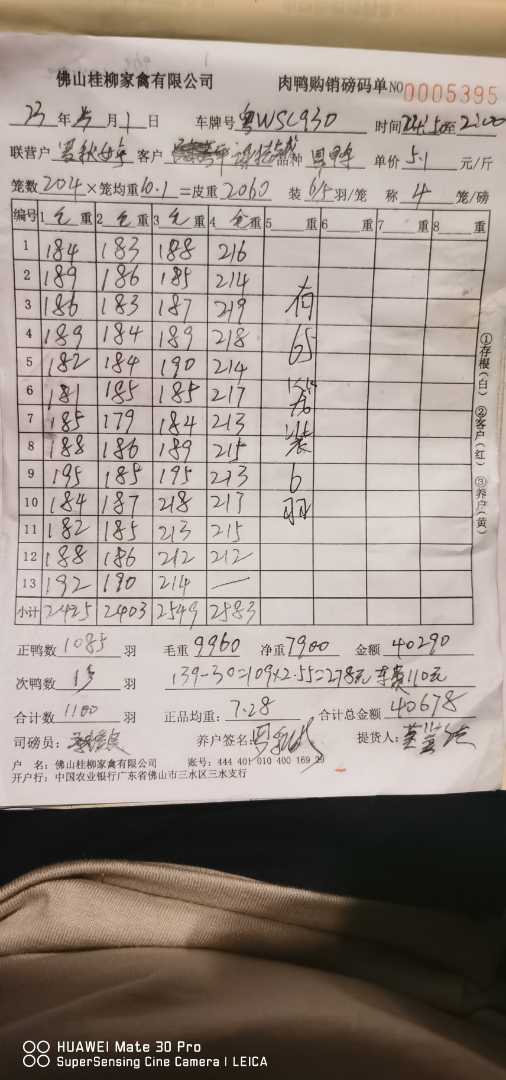 佛山桂柳家禽有限公司 肉鸭购销磅码单 NO 0005395
23 年 月 1 日 车牌号 粤WSC930 时间 至 2:00
联营户 客户 品种 单价 5.1 元/斤
笼数 204 × 笼均重 10.1 = 皮重 2060 装 6/5 羽/笼 称 4 笼/磅
编号 1 仓 重 2 仓 重 3 仓 重 4 仓 重 5 重 6 重 7 重 8 重
1 184 183 188 216
2 189 186 185 214
3 186 183 187 219
4 189 184 189 218
5 182 184 190 214
6 181 185 185 217
7 185 179 184 213
8 188 186 189 215
9 195 185 195 213
10 184 187 218 217
11 182 185 213 215
12 188 186 212 212
13 192 190 214 —
小计 2425 2403 2549 2583
有
65
装
6
羽
①存根(白) ②客户(红) ③养户(黄)
正鸭数 1085 羽 毛重 9960 净重 7900 金额 40290
次鸭数 15 羽 139-30=109×2.55=278元 车费110元
合计数 1100 羽 正品均重: 7.28 合计总金额 40678
司磅员: 养户签名: 提货人:
户 名: 佛山桂柳家禽有限公司 账号: 444 401 010 400 169 29
开户行: 中国农业银行广东省佛山市三水区三水支行
HUAWEI Mate 30 Pro
SuperSensing Cine Camera | LEICA